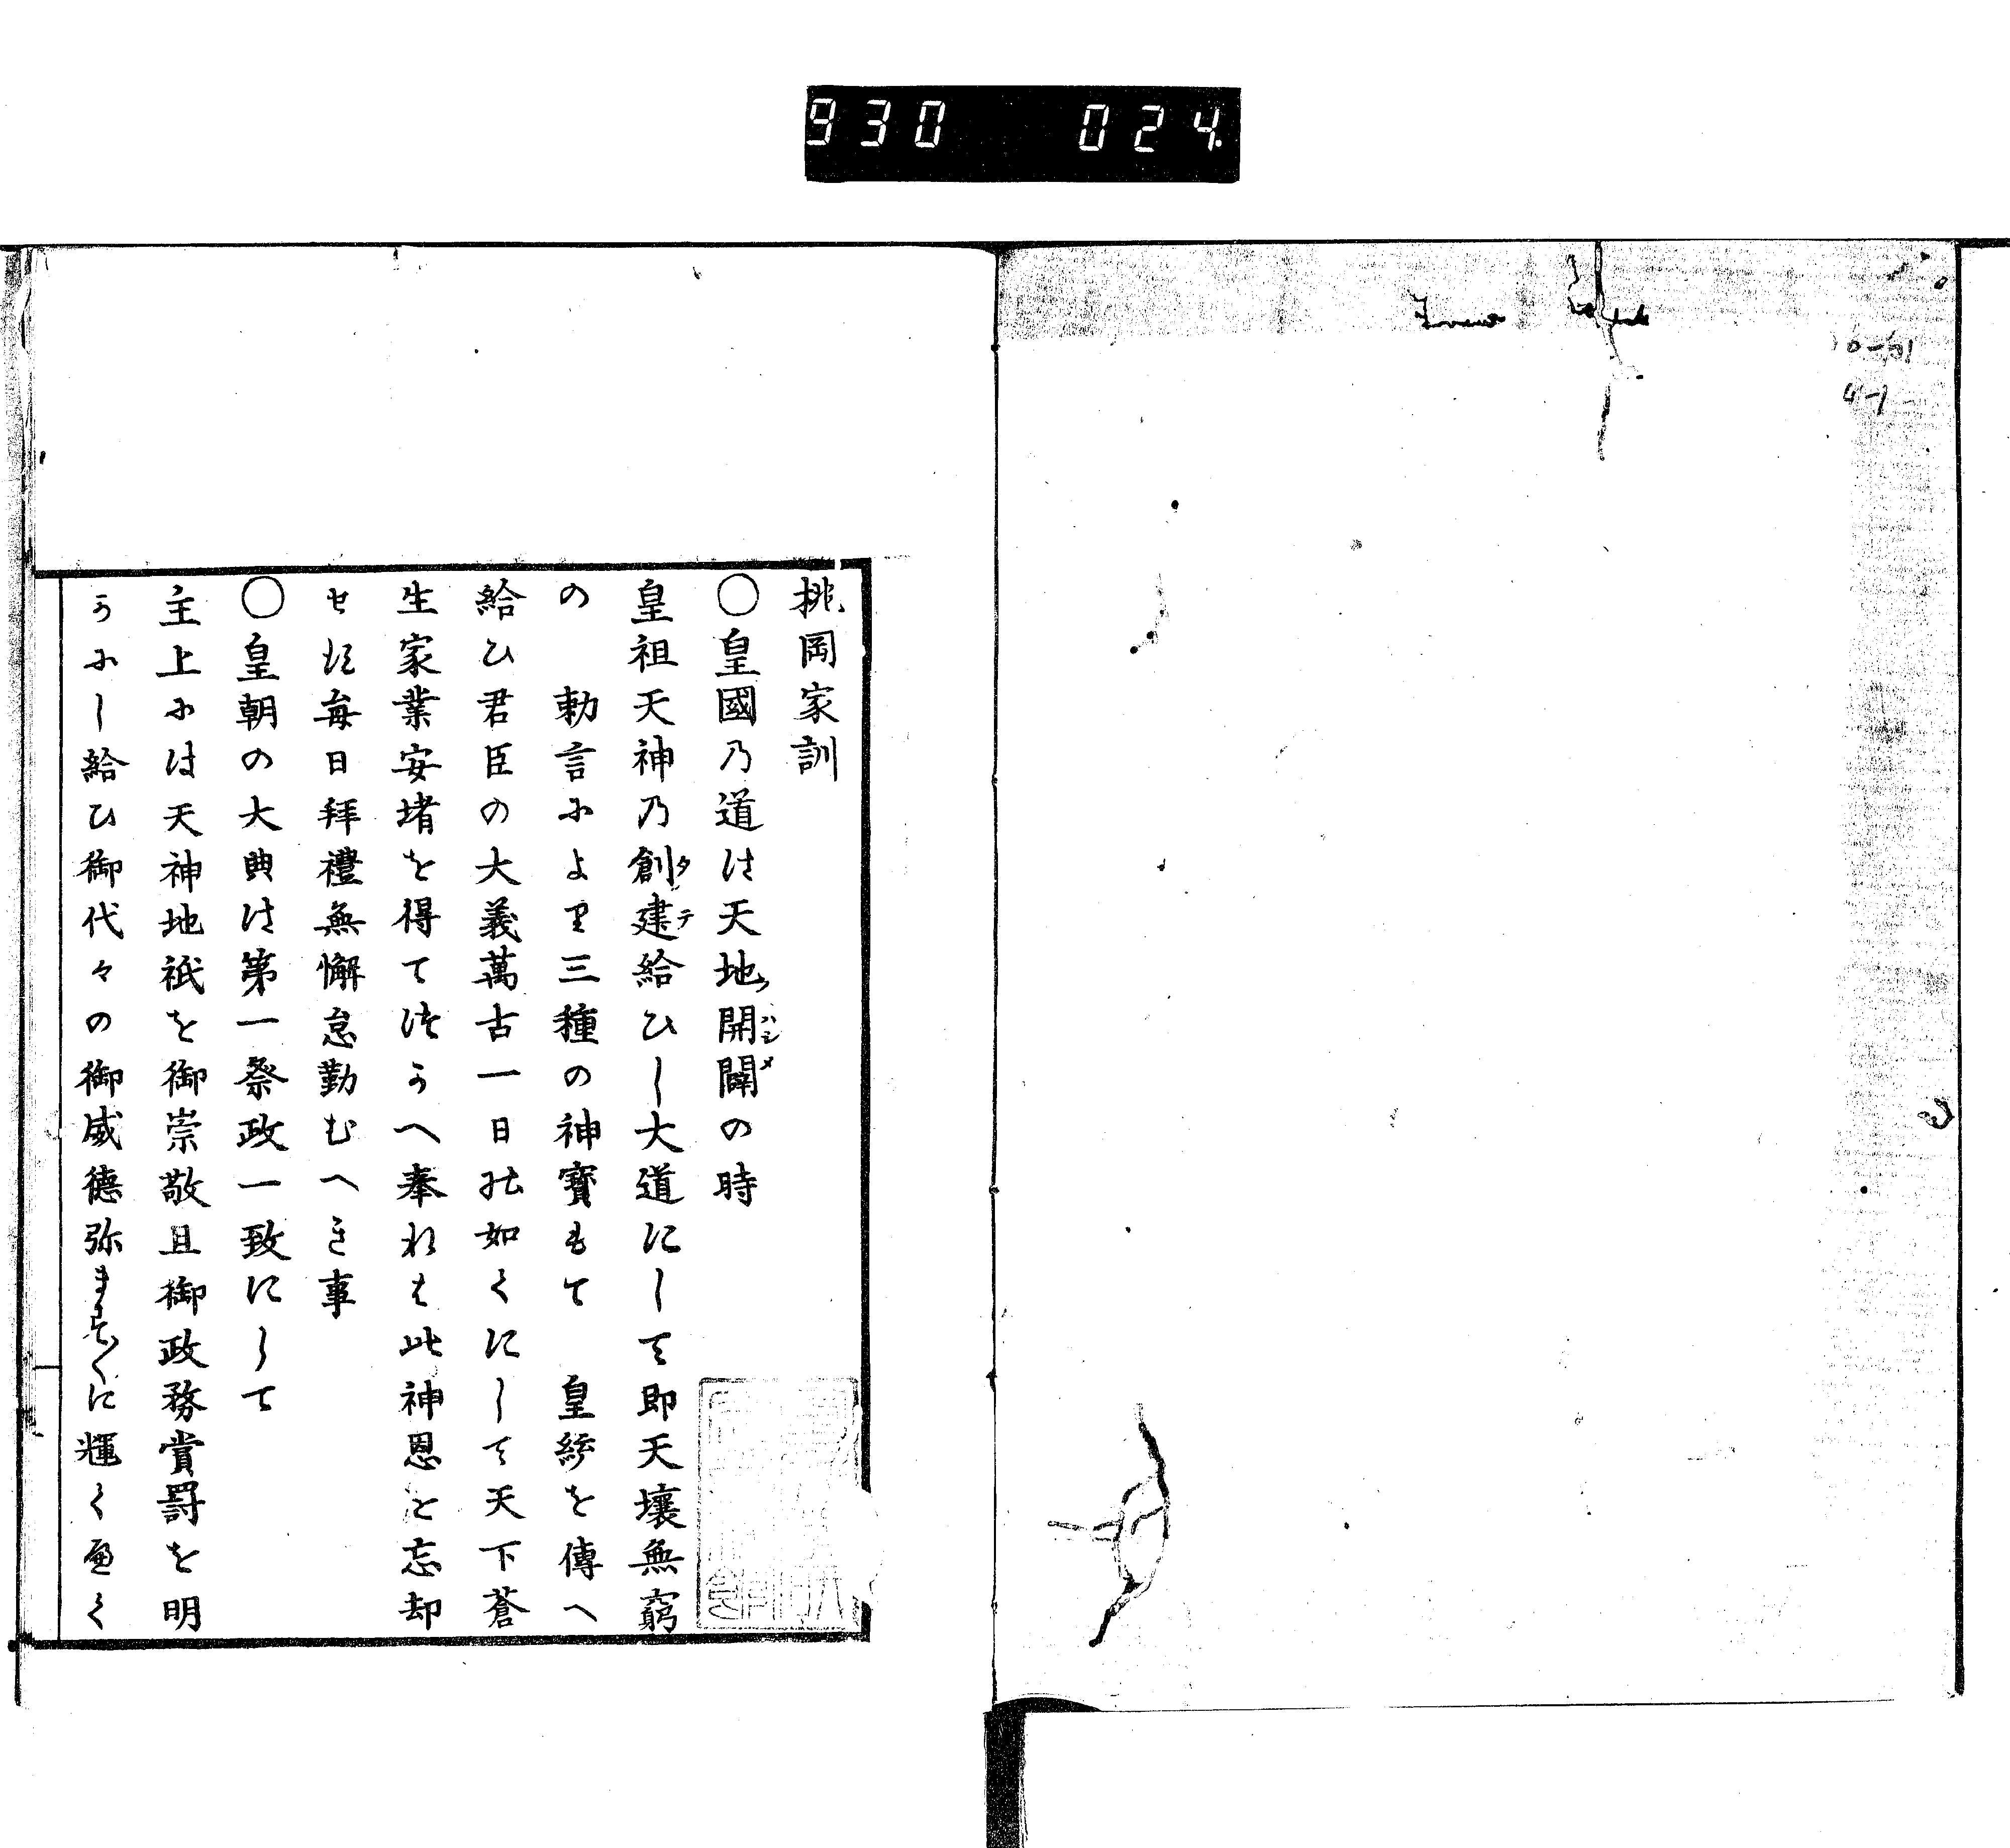 930 024.
桃岡家訓
〇皇國乃道は天地開闢の時
ハシメ
皇祖天神乃創建給ひし大道にして即天壤無窮
タテ
の　勅言によリ三種の神寳もて　皇統を傳へ
給ひ君臣の大義萬古一日の如くにして天下蒼
生家業安堵を得てつかへ奉れは此神恩を忘却
せす毎日拜禮無懈怠勤むへき事
〇皇朝の大典は第一祭政一致にして
主上には天神地祇を御崇敬且御政務賞罰を明
かにし給ひ御代々の御威德弥ますますに輝く